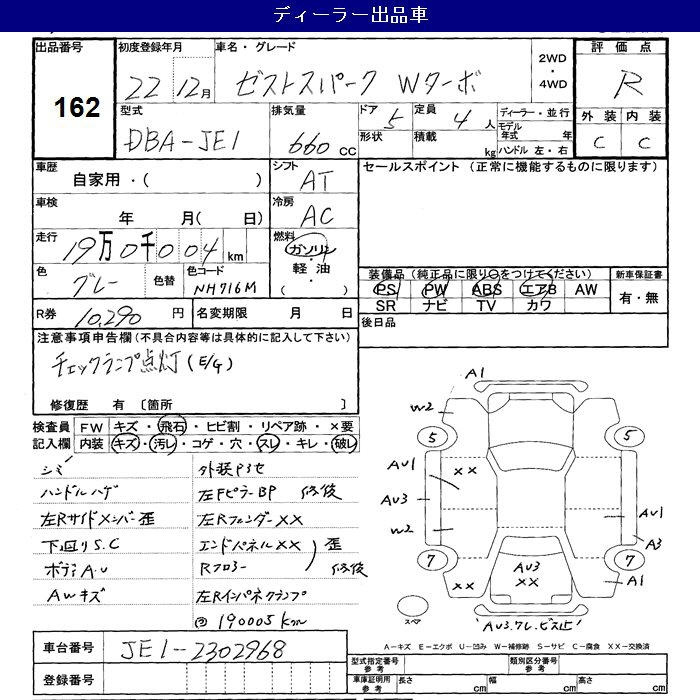 ディーラー出品車
出品番号
162
初度登録年月
22 12月
車名・グレード
ゼストスパーク Wターボ
2WD
・
4WD
評価点
R
型式
DBA-JE1
排気量
660 CC
ドア 5
形状
定員 4 人
積載 kg
ディーラー・並行
モデル年式 年
ハンドル 左・右
外装 内装
C C
車歴
自家用・( )
シフト
AT
セールスポイント (正常に機能するものに限ります)
車検
年 月( 日)
冷房
AC
走行
19万0千004km
燃料
ガソリン
・
軽油
( )
色
グレー
色替
色コード
NH716M
装備品 (純正品に限り○をつけてください)
PS PW ABS エアB AW
SR ナビ TV カワ
新車保証書
有・無
R券 10,290円
名変期限 月 日
後日品
注意事項申告欄 (不具合内容等は具体的に記入して下さい)
チェックランプ点灯(E/G)
修復歴 有 〔箇所 〕
検査員記入欄
FW キズ・飛石・ヒビ割・リペア跡・×要
内装 キズ・汚レ・コゲ・穴・スレ・キレ・破レ
シミ
ハンドルハゲ
左Rサイドメンバー歪
下回りS.C
ボディA.U
AWキズ
外装P3セ
左FピラーBP 修後
左RフェンダーXX
エンドパネルXX 歪
Rフロアー 修後
左Rインパネクランプ
190005km
A1
W2
5
5
AU1
XX
AU3
W2
AU1
A3
7
7
XX
AU3
XX
A1
スペア
AU3.ワレ.ビス止
A-キズ E-エクボ U-凹み W-補修跡 S-サビ C-腐食 XX-交換済
車台番号
JE1-2302968
登録番号
型式指定番号
参考
類別区分番号
参考
車庫証明用
参考
長さ cm
幅 cm
高さ cm